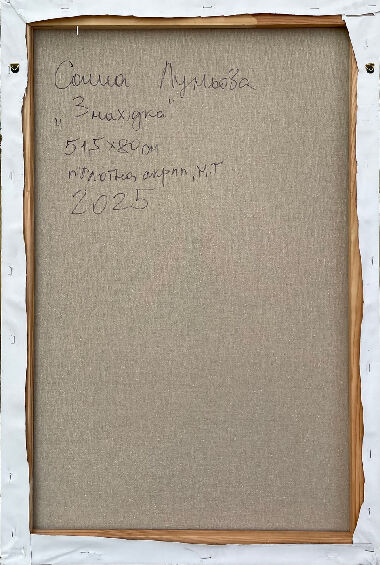 Саша Лумбова
„Знахідка"
51,5 x 80 см
полотно, акрил, н.т
2025